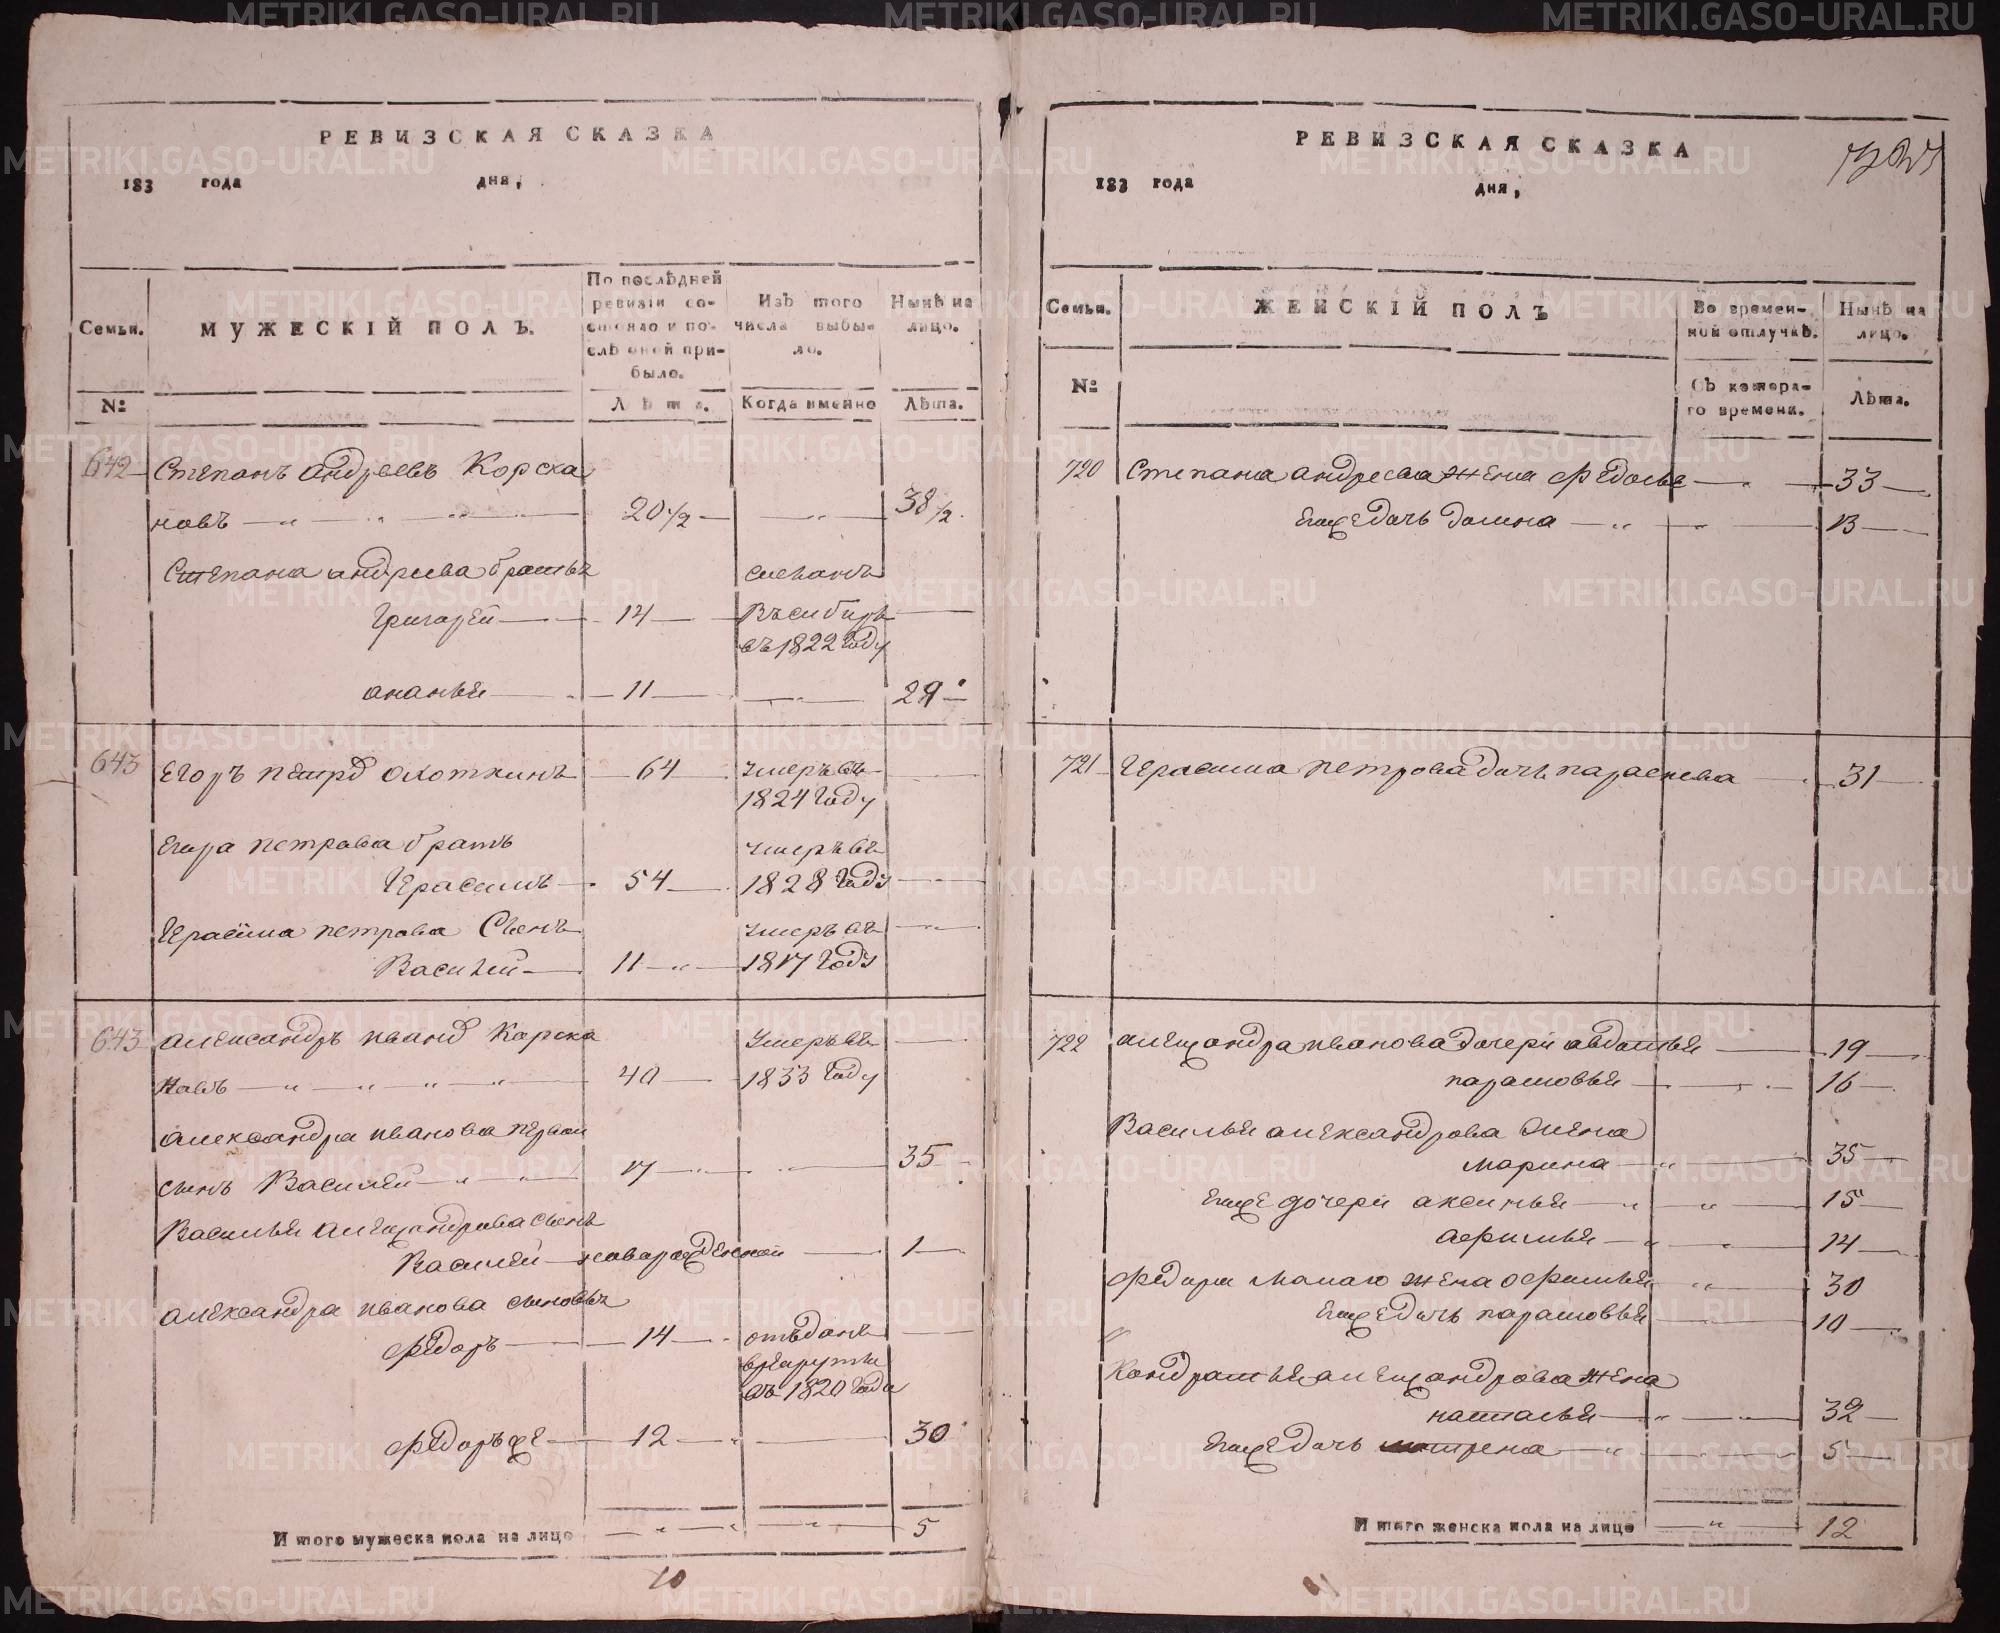 РЕВИЗСКАЯ СКАЗКА
183 года дня,
Семьи.
МУЖЕСКІЙ ПОЛЪ.
По послѣдней ревизіи состояло и послѣ оной прибыло.
Изъ того числа выбыло.
Нынѣ на лицо.
№
Лѣта.
Когда именно
Лѣта.
642 Степанъ андреевъ Корска
новъ 20 1/2 38 1/2
Степана андреева братья сосланъ
Григорей 14 Въсибирь
въ 1822 Году
ананья 11 29
643 Егоръ петров охоткинъ 64 умеръ въ
1824 Году
Егора петрова братъ умеръ въ
Герасимъ 54 1828 Году
Герасима петрова Сынъ умеръ въ
Василей 11 1817 Году
643 александръ иванов Карска
навъ 40 Умеръ въ
1833 Году
александра иванова первой
сынъ Василей 17 35
Василья александрова сынъ
Василей новорожденной 1
александра иванова сыновья
Федоръ 14 отъданъ
врекруты
въ 1820 Годе
Федоръ же 12 30
Итого мужеска пола на лицо 5
10
РЕВИЗСКАЯ СКАЗКА
183 года дня,
Семьи.
ЖЕНСКІЙ ПОЛЪ
Во временной отлучкѣ.
Нынѣ на лицо.
№
Съ котораго времени.
Лѣта.
720 Степана андреева жена Федосья 33
Ещедочь Домна 13
721 Герасима петрова дочь параскева 31
722 александра иванова дочери авдотья 19
парасковья 16
Василья александрова жена
марина 35
Еще дочери аксинья 15
афимья 14
Федора малаго жена офимья 30
Ещедочь парасковья 10
Кондратья александрова жена
наталья 32
Ещедочь матрена 5
Итого женска пола на лицо 12
METRIKI.GASO-URAL.RU